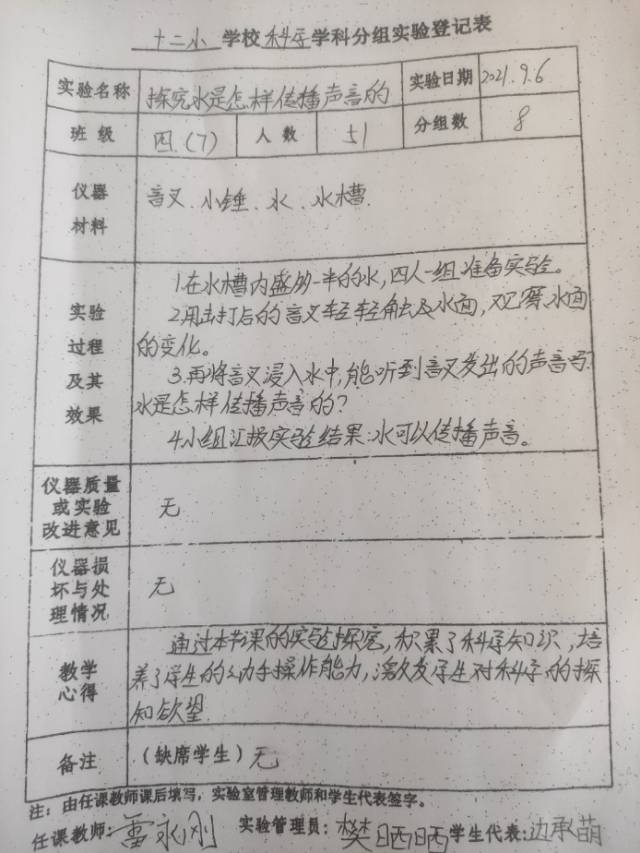 十二小 学校 科学 学科分组实验登记表
实验名称 探究水是怎样传播声音的 实验日期 2021.9.6
班级 四.(7) 人数 51 分组数 8
仪器材料 音叉、小锤、水、水槽.
实验过程及其效果
1.在水槽内盛多一半的水,四人一组准备实验。
2.用击打后的音叉轻轻触及水面,观察水面
的变化。
3.再将音叉浸入水中,能听到音叉发出的声音吗?
水是怎样传播声音的?
4.小组汇报实验结果:水可以传播声音。
仪器质量或实验改进意见 无
仪器损坏与处理情况 无
教学心得
通过本节课的实验探究,积累了科学知识,培
养了学生的动手操作能力,激发学生对科学的探
知欲望
备注 (缺席学生)无
注:由任课教师课后填写,实验室管理教师和学生代表签字。
任课教师:雷永刚 实验管理员:樊晒晒 学生代表:边承萌